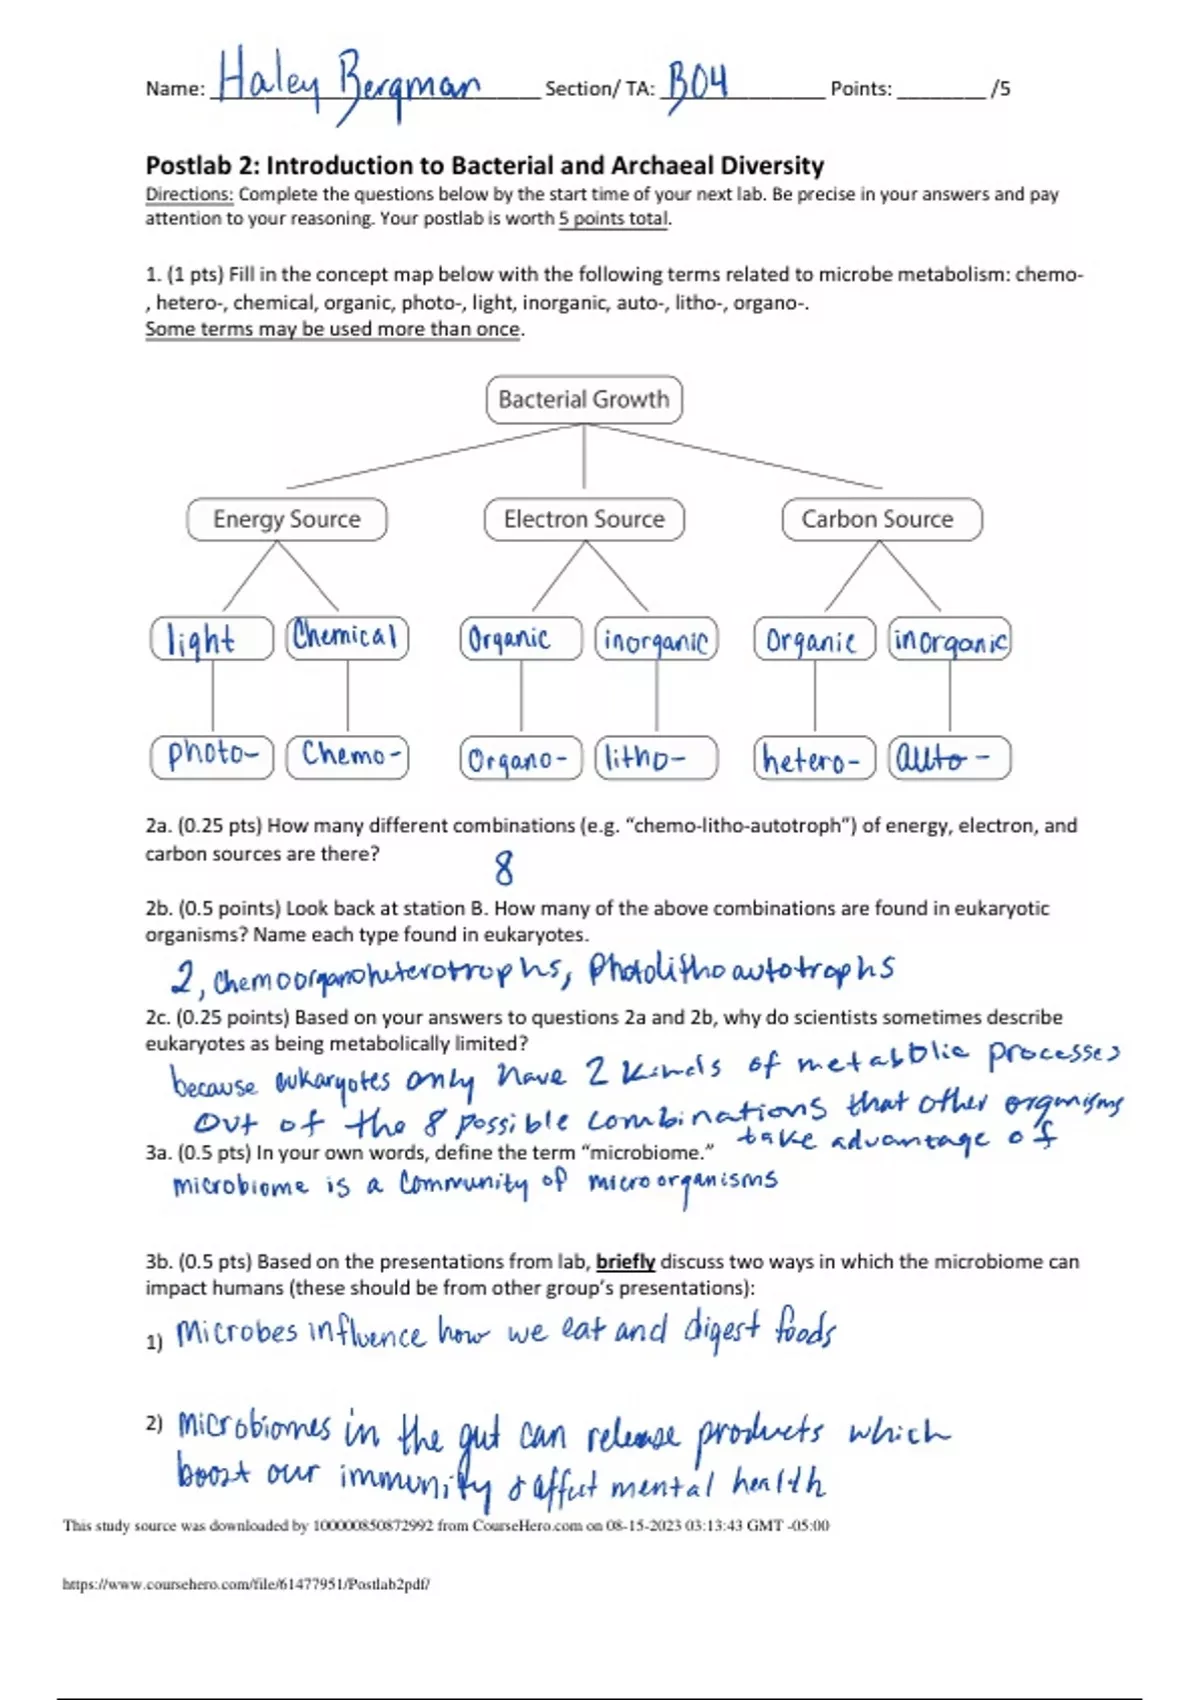 Name: Haley Bergman Section/ TA: B04 Points: ________ /5
Postlab 2: Introduction to Bacterial and Archaeal Diversity
Directions: Complete the questions below by the start time of your next lab. Be precise in your answers and pay
attention to your reasoning. Your postlab is worth 5 points total.
1. (1 pts) Fill in the concept map below with the following terms related to microbe metabolism: chemo-
, hetero-, chemical, organic, photo-, light, inorganic, auto-, litho-, organo-.
Some terms may be used more than once.
Bacterial Growth
Energy Source Electron Source Carbon Source
light Chemical Organic inorganic Organic inorganic
photo- Chemo- Organo- litho- hetero- auto-
2a. (0.25 pts) How many different combinations (e.g. “chemo-litho-autotroph”) of energy, electron, and
carbon sources are there?
8
2b. (0.5 points) Look back at station B. How many of the above combinations are found in eukaryotic
organisms? Name each type found in eukaryotes.
2, Chemoorganoheterotrophs, Photolithoautotrophs
2c. (0.25 points) Based on your answers to questions 2a and 2b, why do scientists sometimes describe
eukaryotes as being metabolically limited?
because eukaryotes only have 2 kinds of metabolic processes
out of the 8 possible combinations that other organisms
take advantage of
3a. (0.5 pts) In your own words, define the term “microbiome.”
microbiome is a community of microorganisms
3b. (0.5 pts) Based on the presentations from lab, briefly discuss two ways in which the microbiome can
impact humans (these should be from other group’s presentations):
1) Microbes influence how we eat and digest foods
2) Microbiomes in the gut can release products which
boost our immunity & affect mental health
This study source was downloaded by 100000850872992 from CourseHero.com on 08-15-2023 03:13:43 GMT -05:00
https://www.coursehero.com/file/61477951/Postlab2pdf/